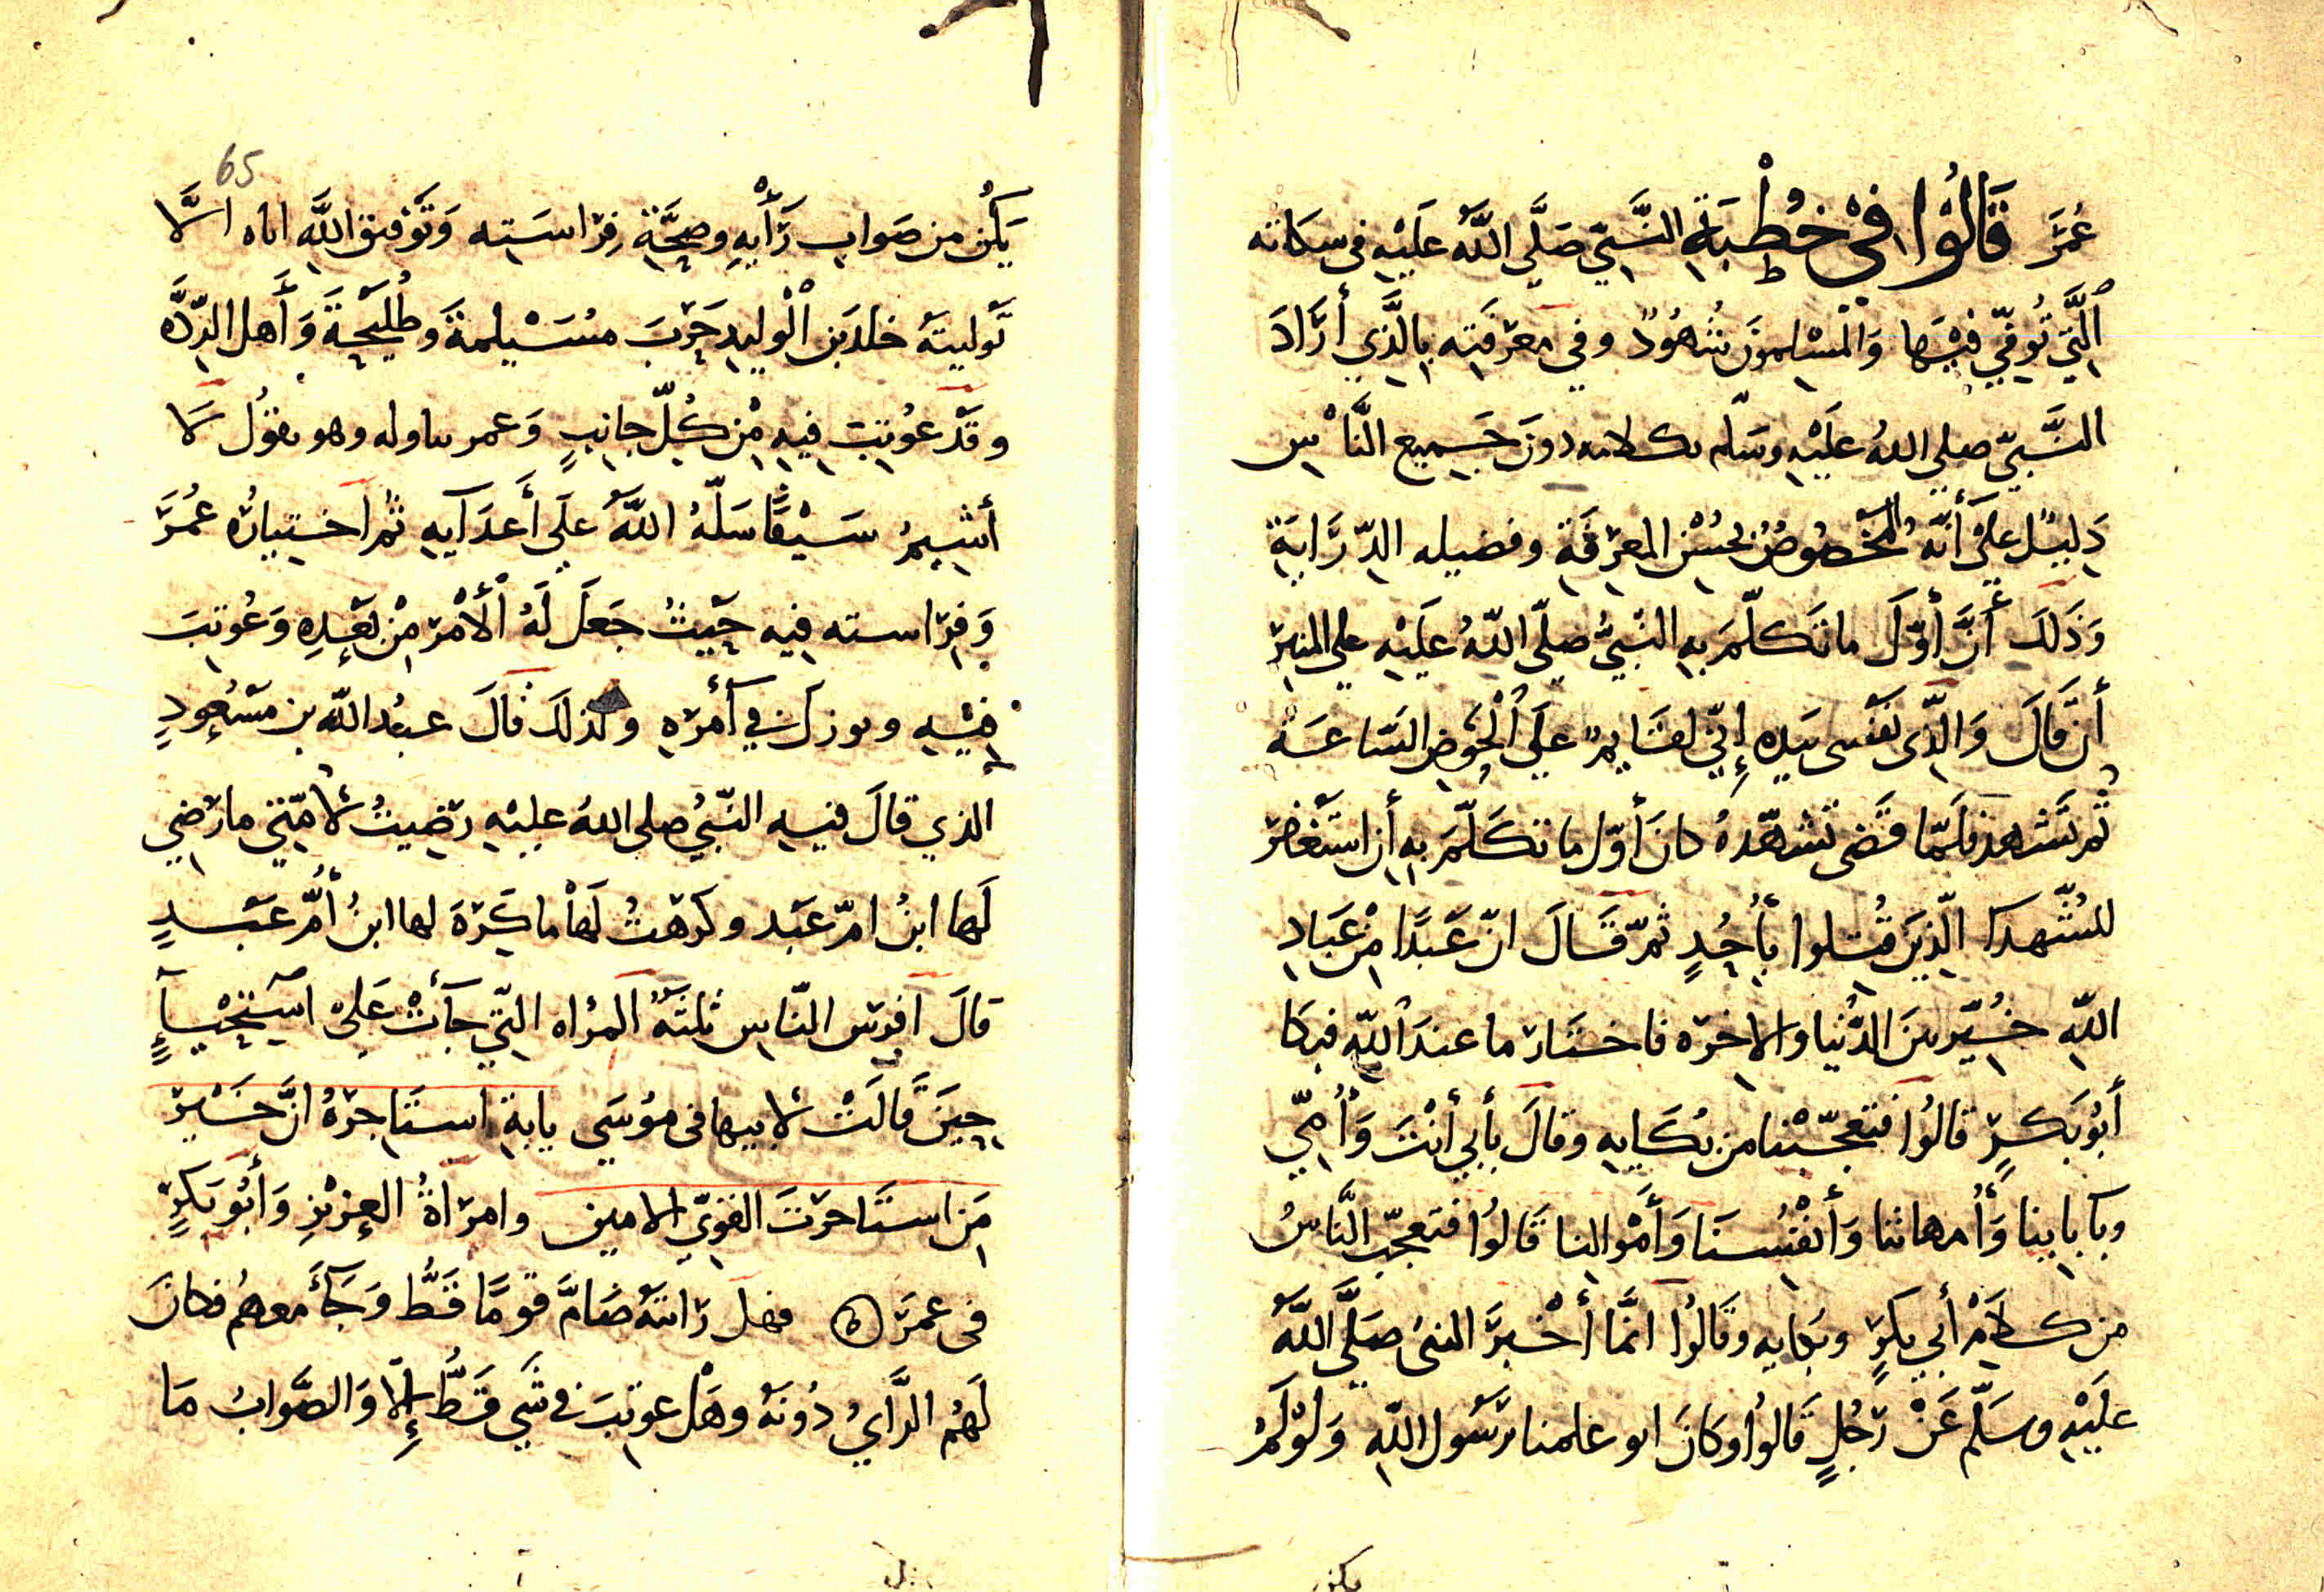 عُمَرَ قَالُوا فِي خُطْبَةِ النَّبِيّ صَلَّى اللَّه عَلَيْهِ في سكاته
الَّتِي تُوفِّيَ فِيْهَا وَالْمسْلمونَ شُهُودٌ وفي معرفَتِه بِالَّذِي أرَادَ
النَّبيّ صلى الله عَلَيْهِ وسَلّم بكلامه دونَ جَمِيع النَّاسِ
دَلِيْل عَلَى أَنَّهُ الْمَخْصُوصُ بحُسْن المعرفَةِ وفضيله الدّرَايَةِ
وَذَلَكَ أَنَّ أوّلَ ما تَكلّمَ بِهِ النّبيُّ صلّى اللهُ عَلَيْهِ على المنبر
أن قَالَ وَالّذِى نَفْسى بَيده إِنّي لقَايمٌ عَلَى الْحَوْضِ السَّاعَة
ثم تَشهد فلَمّا قَضى تَشهّدهُ كانَ أوّل ما تكَلّمَ بِهِ أن استَغفرَ
للشّهدا الّذِينَ قُتِلوا بِأُحُدٍ ثمّ قَالَ انّ عَبْدًا مِنْ عِبَادِ
اللهِ خُيّر بينَ الدُّنْيا والاخرَه فاختَارَ ما عندَ اللهِ فبكا
أَبُو بَكرٍ قالُوا فَتَعجّبْنا من بُكَايِهِ وقالَ بأَبي أَنْتَ وَأُمِّي
وبآبايِنا وَأُمهاتنا وَأَنفُسنَا وَأَمْوالِنا قَالوُا فتعجّب النَّاسُ
من كَلَامِ أَبي بكرٍ وبكايه وقَالُوا انمَّا أخْبرَ النبىُ صَلَّى اللَّهُ
عَلَيْهِ وسَلّم عَنْ رَجُلٍ قَالوُا وكَانَ ابو علمنا برَسُول اللهِ وَلَوْ لَمْ
65
يَكُن من صَواب رَأْيهِ وصِحَّةِ فِرَاسَتِه وَتَوْفيق اللَّهِ اياه الَّا
تَوليتَهُ خلدَ بن الْوليدِ حَرْبَ مسَيْلمةَ وطُلَيْحَةَ وَأَهل الرِّدَّه
وقَدْ عُوتِبَ فِيهِ مِنْ كُلِّ جانِبٍ وَعمر يناوله وهو يقوُل لَا
أَشِيمُ سَيْفًا سَلّهُ اللَّهُ علَى أَعدَآيِه ثم اختيارُه عُمَرَ
وَفِرَاسته فِيهِ حَيْثُ جَعَلَ لَهُ الْأَمْر مِنْ بَعْدِهِ وَعُوتبَ
فيْهِ ونوزل في أَمْرَهِ ولذلَكَ قالَ عبْد اللّه بن مَسْعُودٍ
الذي قالَ فيهِ النّبيُ صلى اللهُ عليْهِ رَضِيتُ لامّتي ما رَضِي
لَها ابنُ امّ عَبْد وكرهتُ لَهاْ ما كَرَهَ لها ابنُ أُمّ عَبْدٍ
قالَ افرس النّاس ثلثَه المرْاه التّي جَأَتْ عَلَى اسْتِحْيَآءٍ
حِينَ قَالَتْ لابيها في موُسَى يابةِ استَاجرْهُ انَّ خَيْرَ
مَن استَاجرَتَ القَوِيّ الامين وامرَاةُ العِزيْزِ وَأَبُو بَكرٍ
في عمَرَ ه فهل رَايتَهُ ضَامَّ قوِمًا قَطُّ وَجَآءَ معهمُ فكانَ
لَهمُ الرَّأيُ دُونَهُ وهَلْ عوتِبَ في شَي قَطُّ إِلّا وَالصَّوابُ مَا
يكن